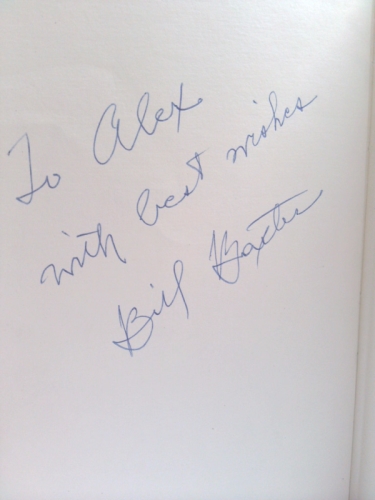 To Alex
with best wishes
Bill Baxter